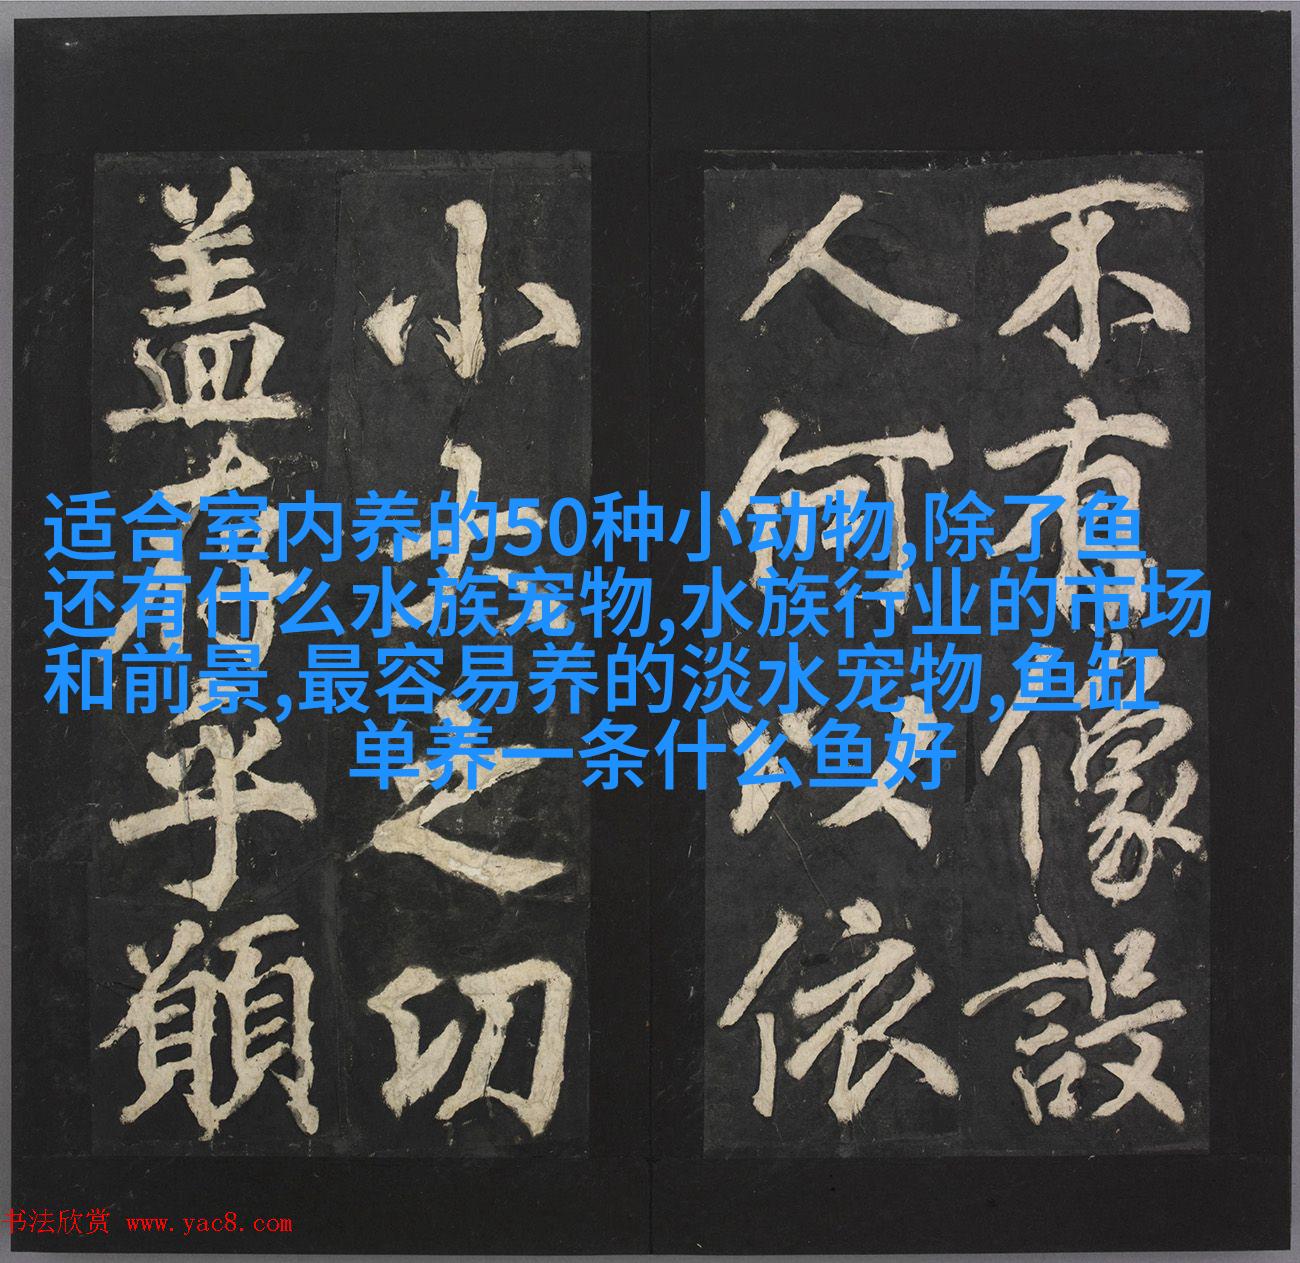 不有像設
人何以依
小大之功
盖有乎願
适合室内养的50种小动物,除了鱼
还有什么水族宠物,水族行业的市场
和前景,最容易养的淡水宠物,鱼缸
单养一条什么鱼好
书法欣赏 www.yac8.com